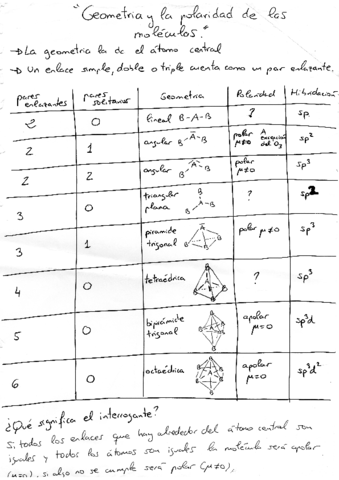 "Geometria y la polaridad de las
moléculas."
→ La geometria la dc el átomo central
→ Un enlace simple, doble o triple cuenta como un par enlazante.
pares enlazantes | pares solitarios | Geometria | Polaridad | Hibridación
2 | 0 | lineal B-A-B | ? | sp
2 | 1 | angular B A B | polar μ≠0 A excepción del O3 | sp²
2 | 2 | angular B A B | polar μ≠0 | sp³
3 | 0 | triangular plana B A B B | ? | sp2
3 | 1 | piramide trigonal A B B B | polar μ≠0 | sp³
4 | 0 | tetraédrica B A B B B | ? | sp³
5 | 0 | bipirámide trigonal B B A B B B | apolar μ=0 | sp³d
6 | 0 | octaédica B B B A B B B | apolar μ=0 | sp³d²
¿Qué significa el interrogante?
Si todos los enlaces que hay alrededor del átomo central son
iguales y todos los átomos son iguales la molécula será apolar
(μ=0), si algo no se cumple será polar (μ≠0),